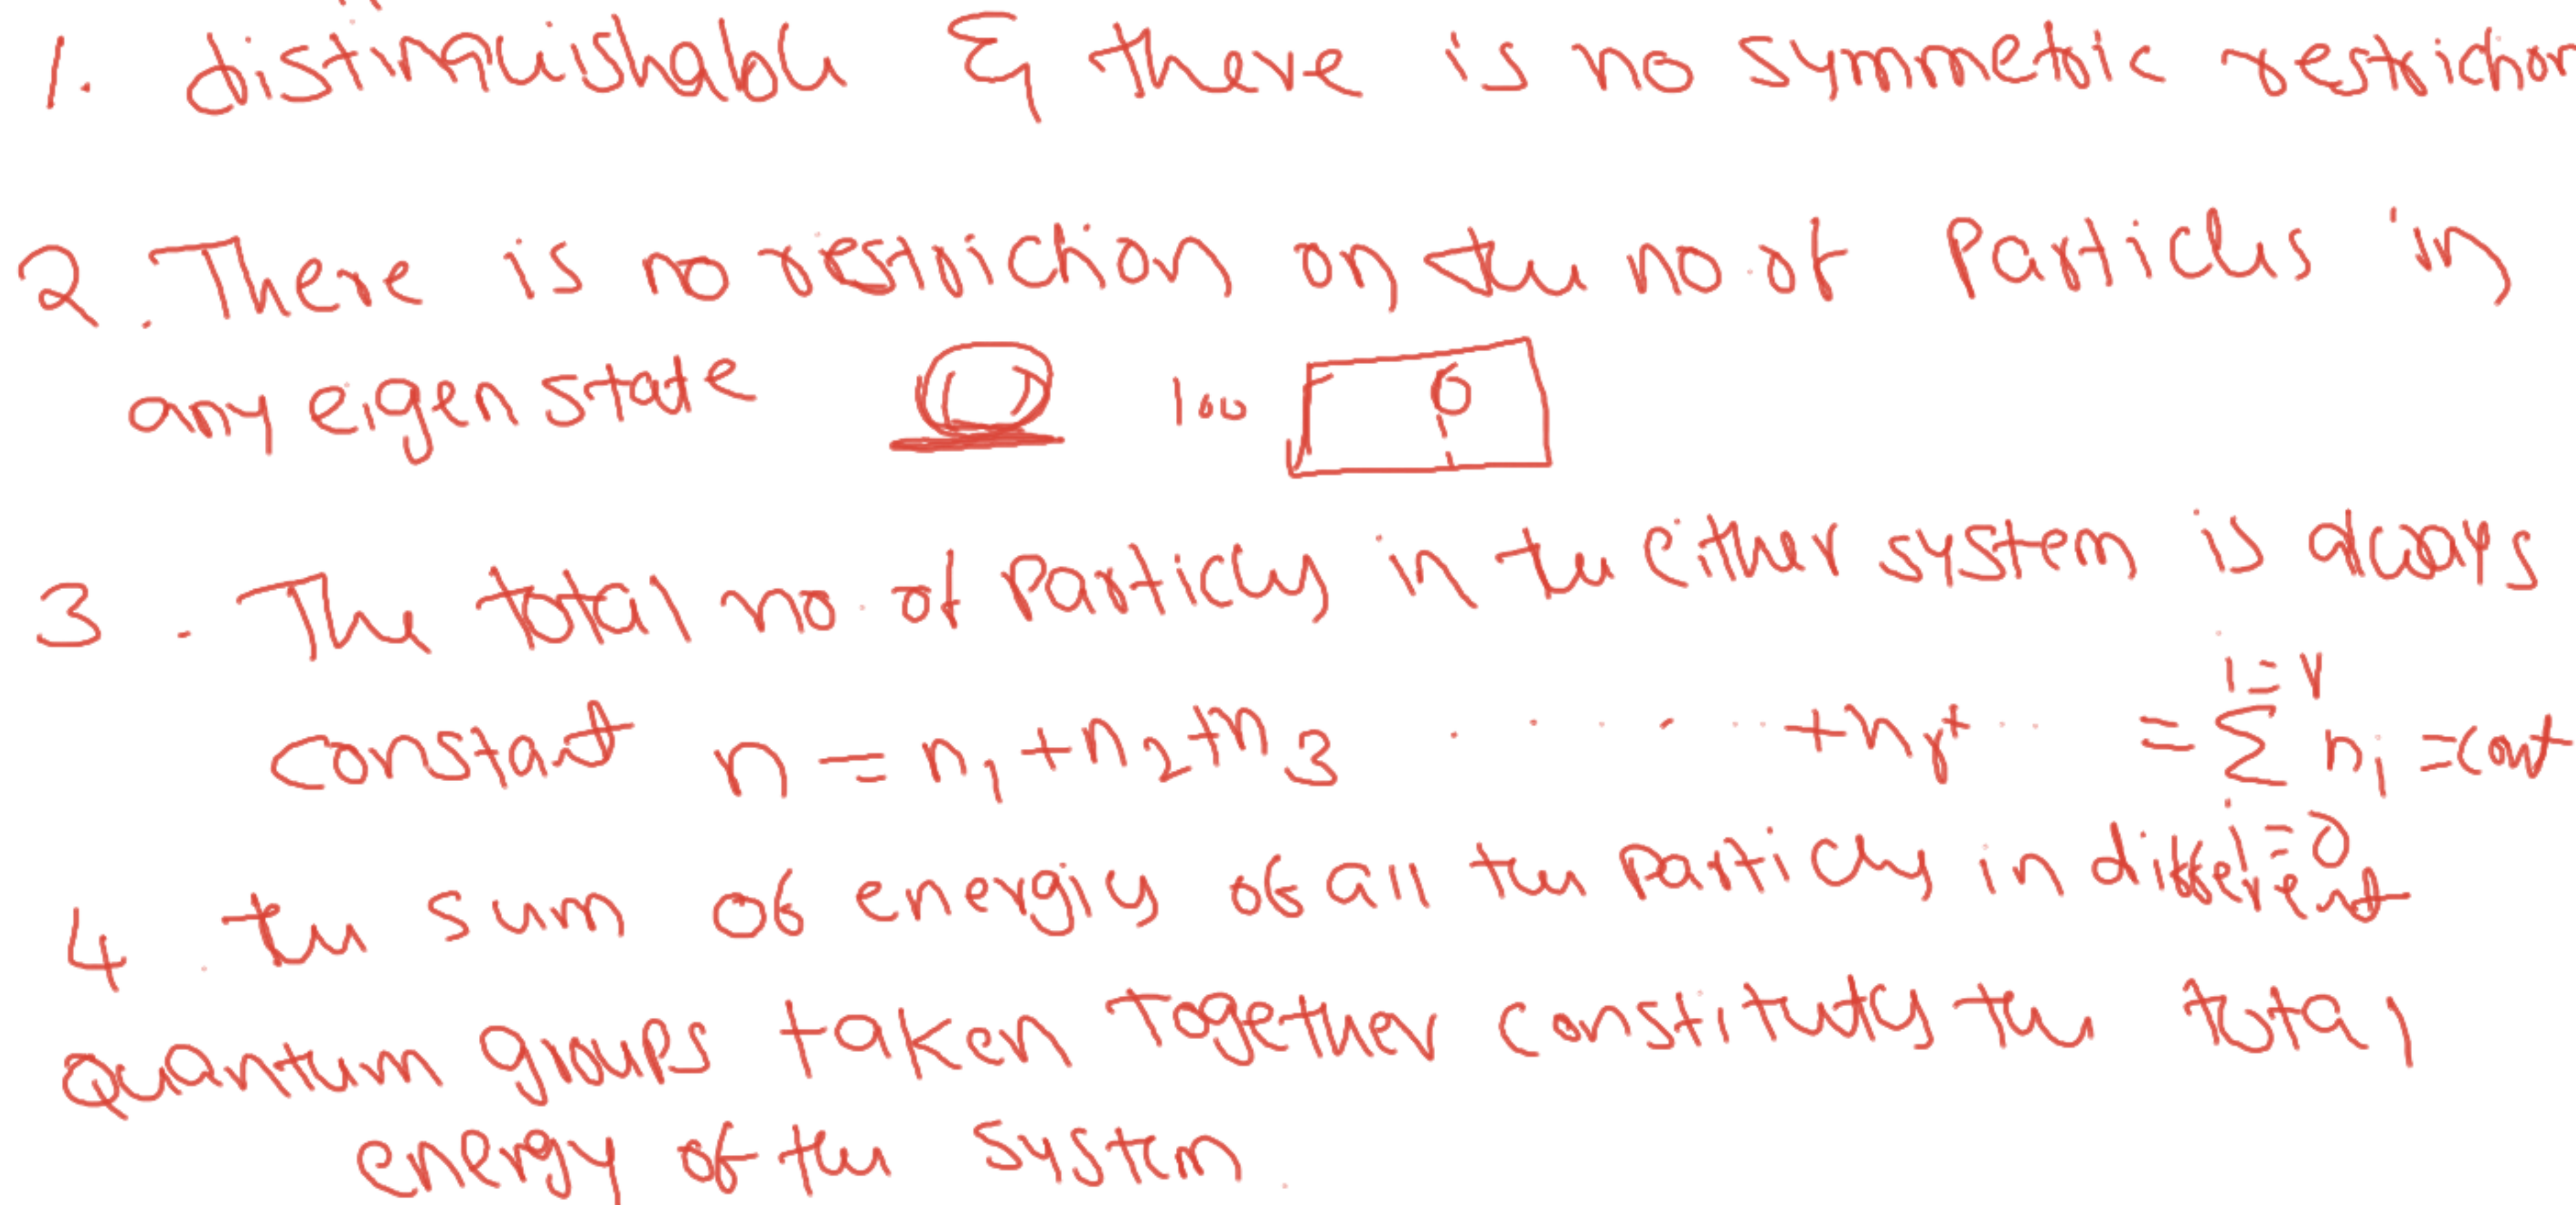 1. distinguishable & there is no symmetric restriction
2. There is no restriction on the no. of Particles in
any eigen state 100
3. The total no. of Particles in the either system is always
constant n = n₁ + n₂ + n₃ ..... + nᵣ + .. = i=r Σ i=0 nᵢ = cont
4. the sum of energies of all the particles in different
quantum groups taken together constitutes the total
energy of the system.